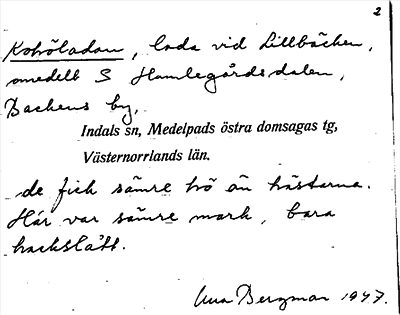 2
Kohöladan, lada vid Lillbäcken,
omedelb S Hamlegårdsdalen,
Backens by,
Indals sn, Medelpads östra domsagas tg,
Västernorrlands län.
de fick sämre hö än hästarna.
Här var sämre mark, bara
hackslått.
Una Bergman 1947.